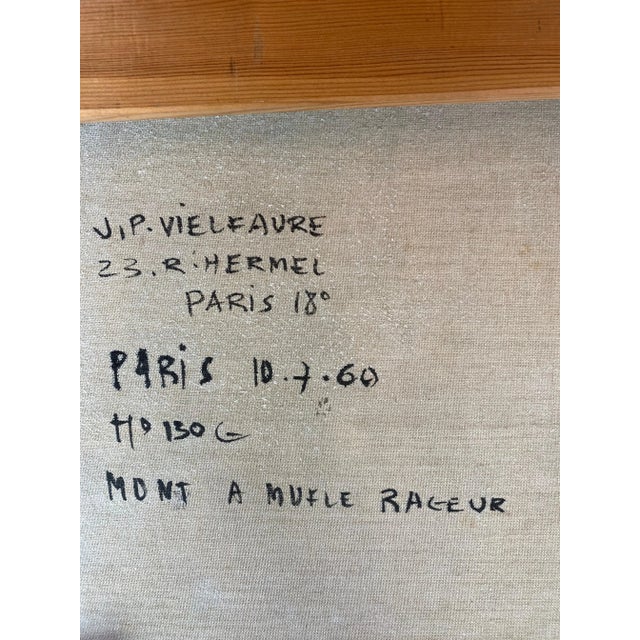 J.P. VIELFAURE
23. R. HERMEL
PARIS 18°
PARIS 10.7.60
H° 130 G
MONT A MUFLE RAGEUR